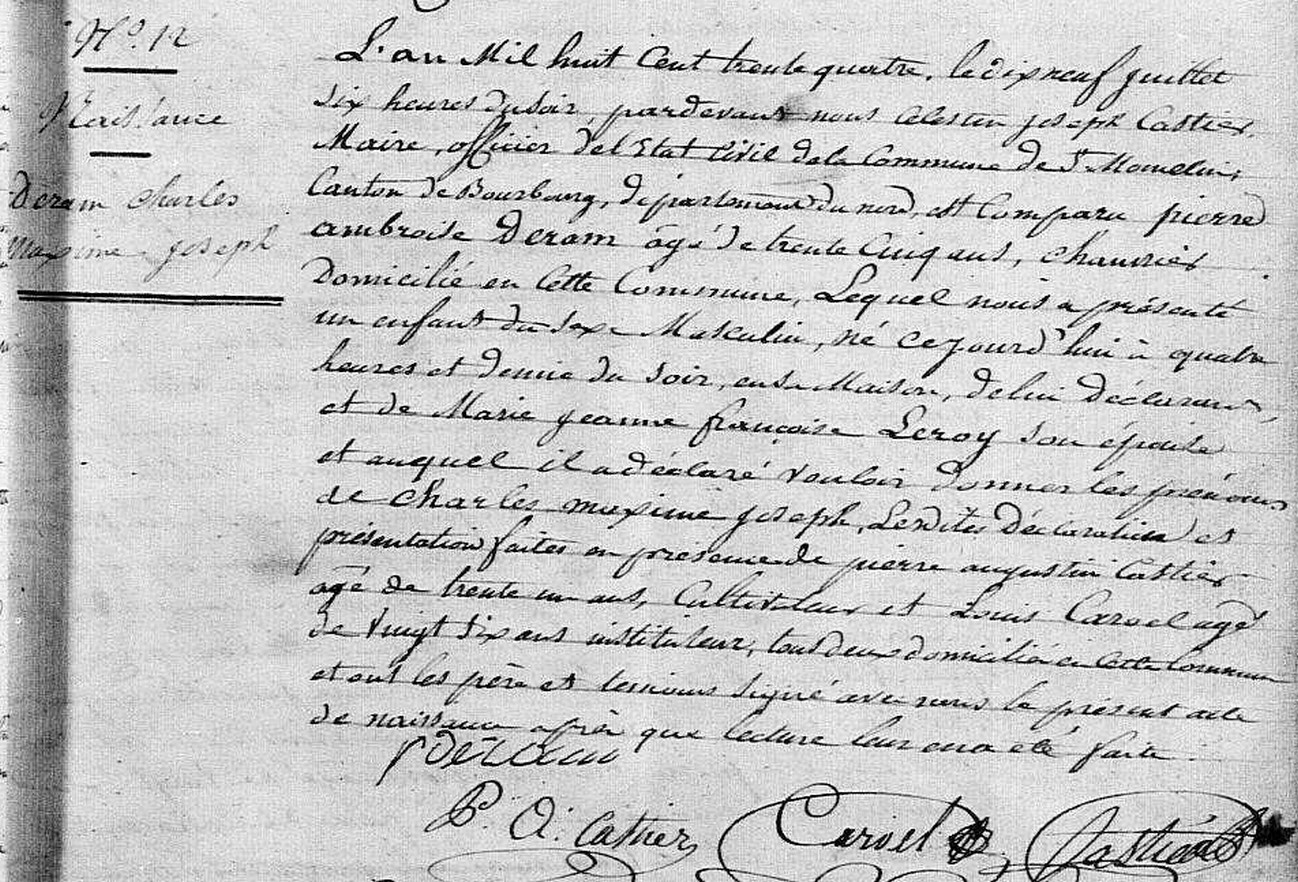 N.o 12
Naissance
Deram Charles
Maxime Joseph
L'an Mil huit Cent trente quatre, le dix neuf juillet
six heures du soir, pardevant nous Célestin joseph Castier,
Maire, officier de l'Etat Civil de la Commune de St Momelin,
Canton de Bourbourg, département du nord, est Comparu pierre
ambroise Deram âgé de trente cinq ans, chaunier
Domicilié en cette Commune, Lequel nous a présenté
un enfant du sexe Masculin, né cejourd'hui à quatre
heures et demie du soir, en sa Maison, de lui déclarant,
et de Marie jeanne françoise Leroy son épouse
et auquel il a déclaré vouloir donner les prénoms
de Charles maxime joseph, Lesdites déclaration et
présentation faites en présence de pierre augustin Castier
agé de trente un ans, Cultivateur et Louis Caroel agé
de Vingt Six ans instituteur, tous deux domiciliés en cette commune
et ont les père et temoins signé avec nous le présent acte
de naissance après que lecture leur en a été faite
P. A. Castier Caroel Castier